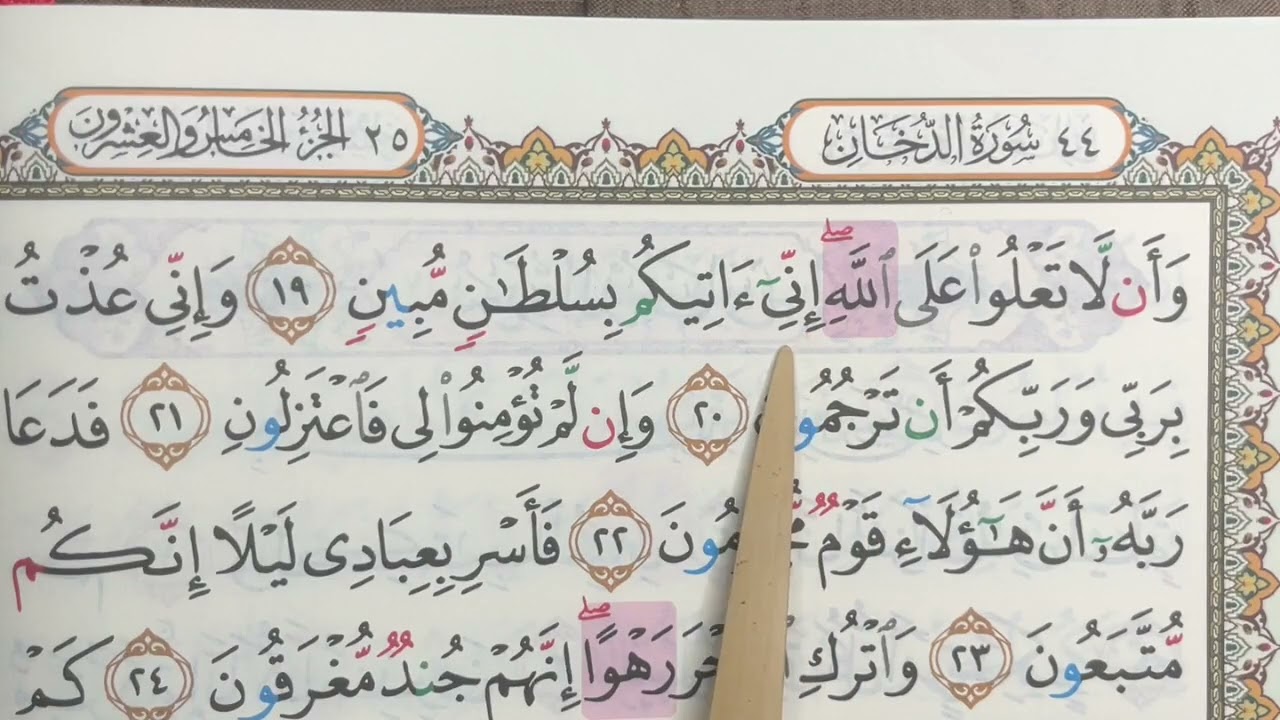 ٤٤ سُورَةُ الدُّخَانِ
٢٥ الجُزْءُ الخَامِسُ وَالعِشْرُونَ
وَأَن لَّا تَعْلُوا۟ عَلَى ٱللَّهِ ۖ إِنِّىٓ ءَاتِيكُم بِسُلْطَـٰنٍ مُّبِينٍ ١٩ وَإِنِّى عُذْتُ
بِرَبِّى وَرَبِّكُمْ أَن تَرْجُمُونِ ٢٠ وَإِن لَّمْ تُؤْمِنُوا۟ لِى فَٱعْتَزِلُونِ ٢١ فَدَعَا
رَبَّهُۥٓ أَنَّ هَـٰٓؤُلَآءِ قَوْمٌ مُّجْرِمُونَ ٢٢ فَأَسْرِ بِعِبَادِى لَيْلًا إِنَّكُم
مُّتَّبَعُونَ ٢٣ وَٱتْرُكِ رَهْوًا ۖ إِنَّهُمْ جُندٌ مُّغْرَقُونَ ٢٤ كَمْ